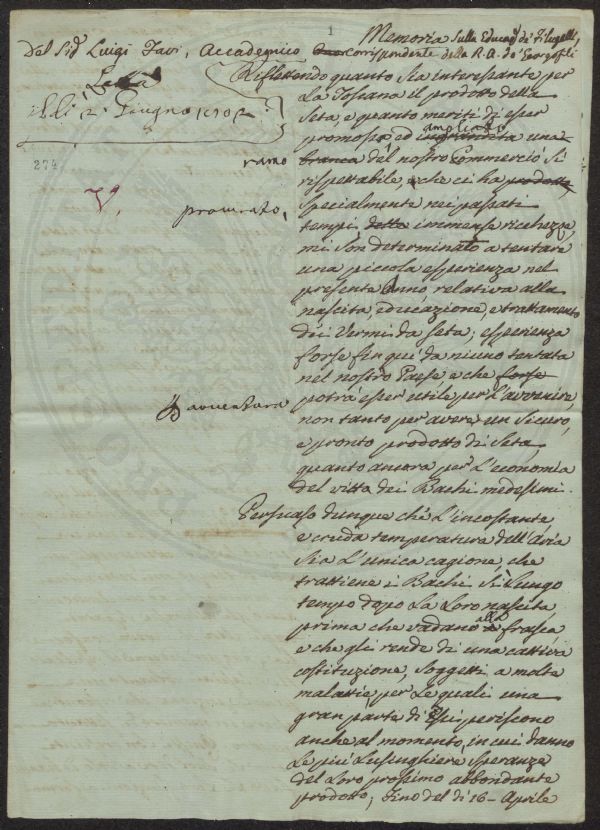 1
Memoria sulla Educaz.e de' Filugelli,
Del Sig.r Luigi Tavi, Accademico Corrispondente della R. A. de' Georgofili
Letta
il dì 2. Giugno 1802.
274
Riflettendo quanto sia interessante per
La Toscana il prodotto della
Seta, e quanto meriti di esser
promosso, ed ingrandita ampliato una
ramo branca del nostro Commercio sì
rispettabile, e che ci ha prodotto,
procurato, specialmente nei passati
tempi, delle immense ricchezze
mi son determinato a tentare
una piccola esperienza nel
presente Anno, relativa alla
nascita, educazione, e trattamento
dei Vermi da Seta; esperienza
forse fin qui da niuno tentata
nel nostro Paese, e che forse
per avventura potrà esser utile per l'avvenire,
non tanto per avere un sicuro,
e pronto prodotto di Seta,
quanto ancora per l'economia
del vitto dei Bachi medesimi.
Persuaso dunque che l'incostante,
e cruda temperatura dell'Aria
sia l'unica cagione, che
trattiene i Bachi sì lungo
tempo dopo la loro nascita,
prima che vadano alla frasca,
e che gli rende di una cattiva
costituzione, soggetti a molte
malattie per le quali una
gran parte di essi periscono
anche al momento, in cui danno
le più lusinghiere speranze
del loro prossimo abbondante
prodotto; fino del dì 16 Aprile